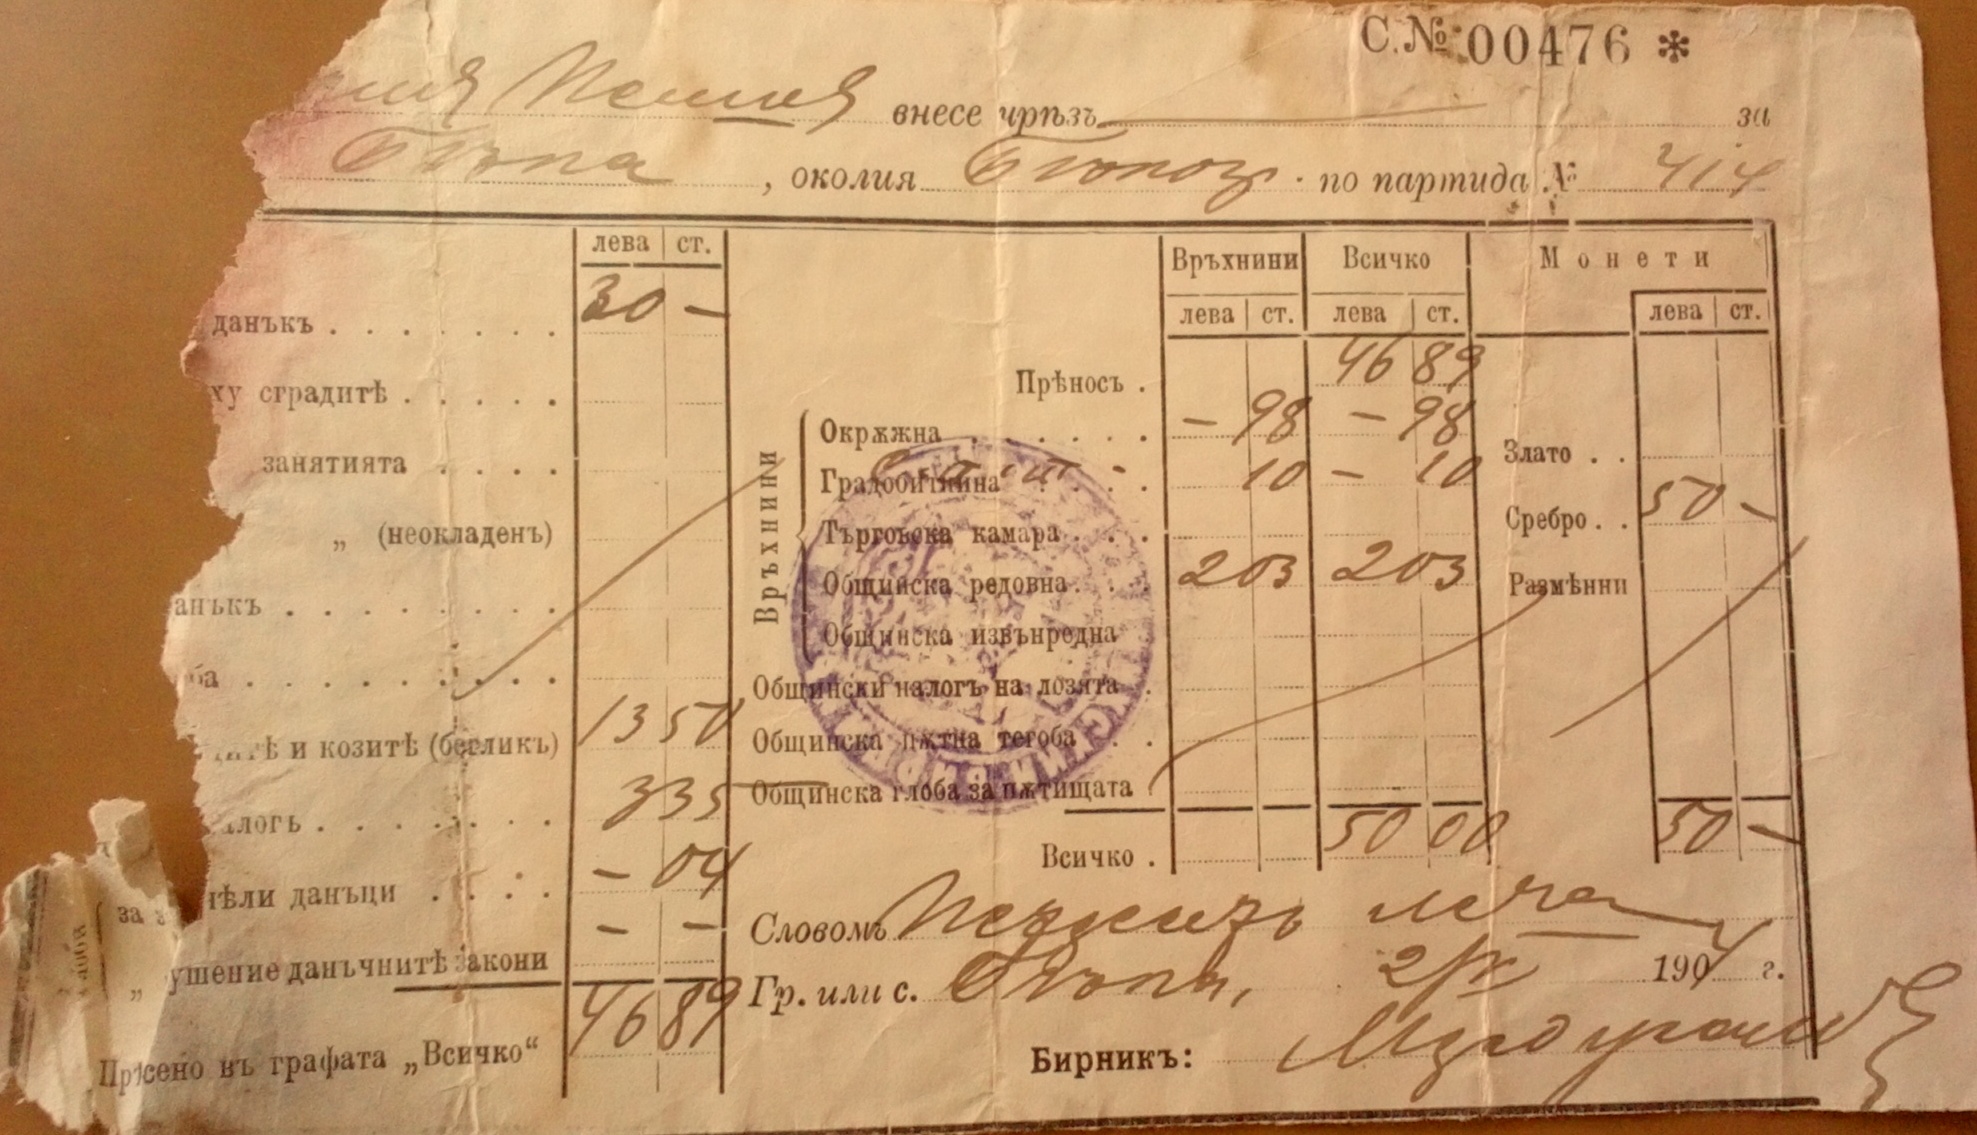 С.№ 00476 *
внесе чрѣзъ за
Бѣла, околия по партида № 414
лева ст.
данъкъ . . . . . . . 30 –
ху сградитѣ . . . . .
занятията . . . .
„ (неокладенъ)
анъкъ . . . . . . . .
ба . . . . . . . . . .
итѣ и козитѣ (бегликъ) 13 50
алогъ . . . . . . . 3 35
ѣли данъци . . . . – 04
за
„ ушение данъчнитѣ закони – –
Прѣсено въ графата „Всичко“ 46 89
Връхнини Всичко Монети
лева ст. лева ст. лева ст.
Прѣносъ . 46 89
Връхнини
Окрѫжна . . . . . . – 98 – 98
Градобитнина . . . 10 – 10
Търговска камара . . .
Общинска редовна . . . 2 03 2 03
Общинска извънредна
Общински налогъ на лозята .
Общинска пѫтна тегоба . .
Общинска глоба за пѫтищата
Всичко . 50 00
Злато . .
Сребро . . 50 –
Размѣнни
50 –
Словомъ Петдесетъ лева
Гр. или с. Бѣла, 190 г.
Бирникъ: